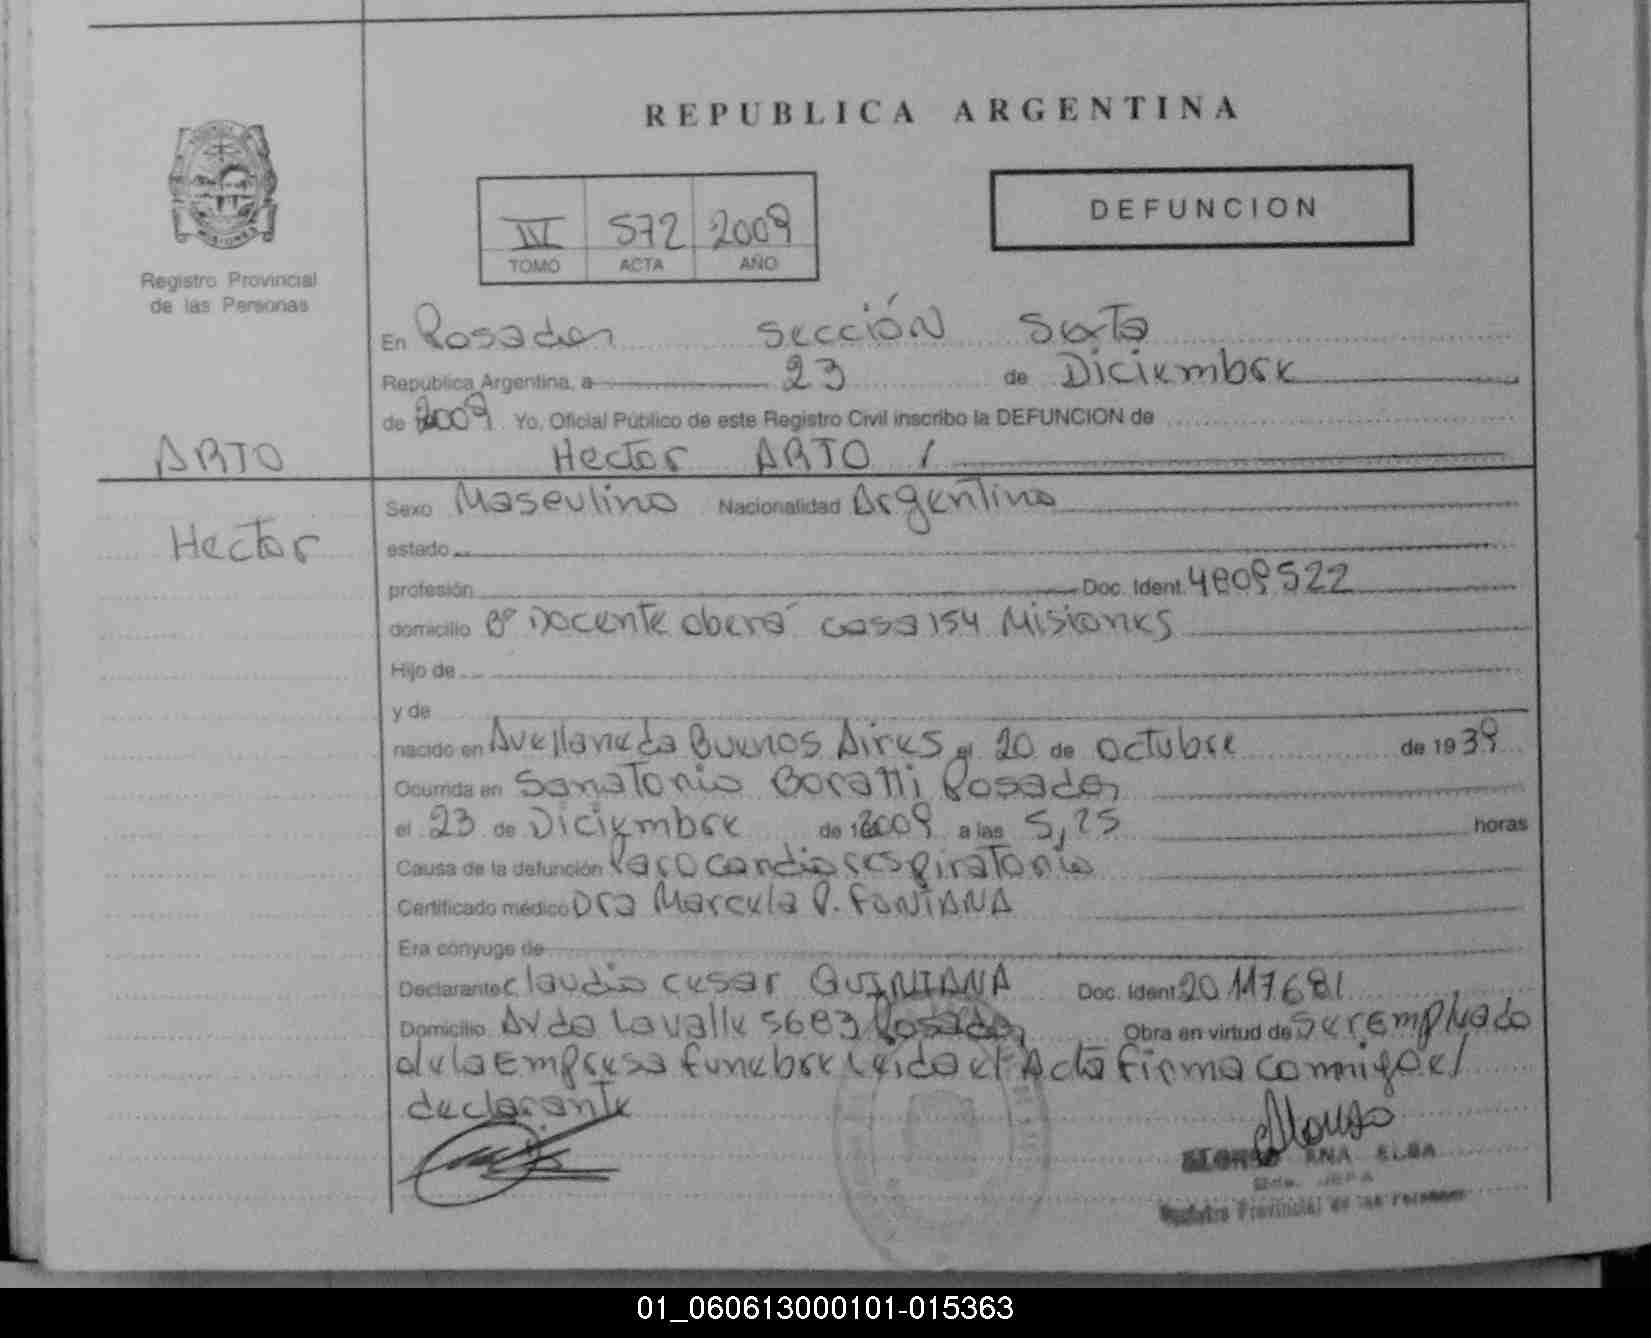 REPUBLICA ARGENTINA
DEFUNCION
III 572 2009
TOMO ACTA AÑO
MISIONES
Registro Provincial
de las Personas
En Posadas sección Sexta
República Argentina, a 23 de Diciembre
de 2009 Yo, Oficial Público de este Registro Civil inscribo la DEFUNCION de
Hector ARTO /
ARTO
Hector
Sexo Masculino Nacionalidad Argentina
estado
profesión Doc. Ident. 4809522
domicilio Bº Docente oberá casa 154 Misiones
Hijo de
y de
nacido en Avellaneda Buenos Aires el 20 de octubre de 1939
Ocurrida en Sanatorio Boratti Posadas
el 23 de Diciembre de 2009 a las 5,25 horas
Causa de la defunción Paro cardiorespiratorio
Certificado médico Dra Marcela P.
Era cónyuge de
Declarante Claudio Cesar QUINTANA Doc. Ident 20.117681
Domicilio Avda Lavalle 5683 Posadas Obra en virtud de ser Empleado
de la Empresa funebre Leida el Acta firma conmigo el
declarante
Alonso
ALONSO ANA ELBA
Registro Provincial de las Personas
01_060613000101-015363